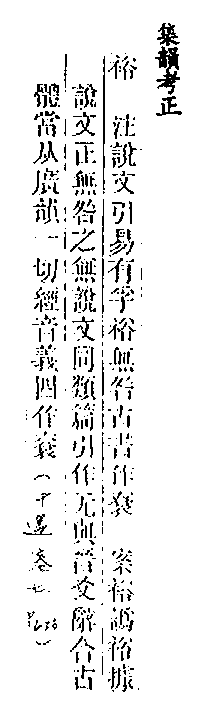 集韻考正
裕　注說文引易有孚裕無咎古書作袞　案裕譌裕據
說文正無咎之無說文同類篇引作无與晉爻辭合古
體當从廣韻一切經音義四作袞（十遇 卷七